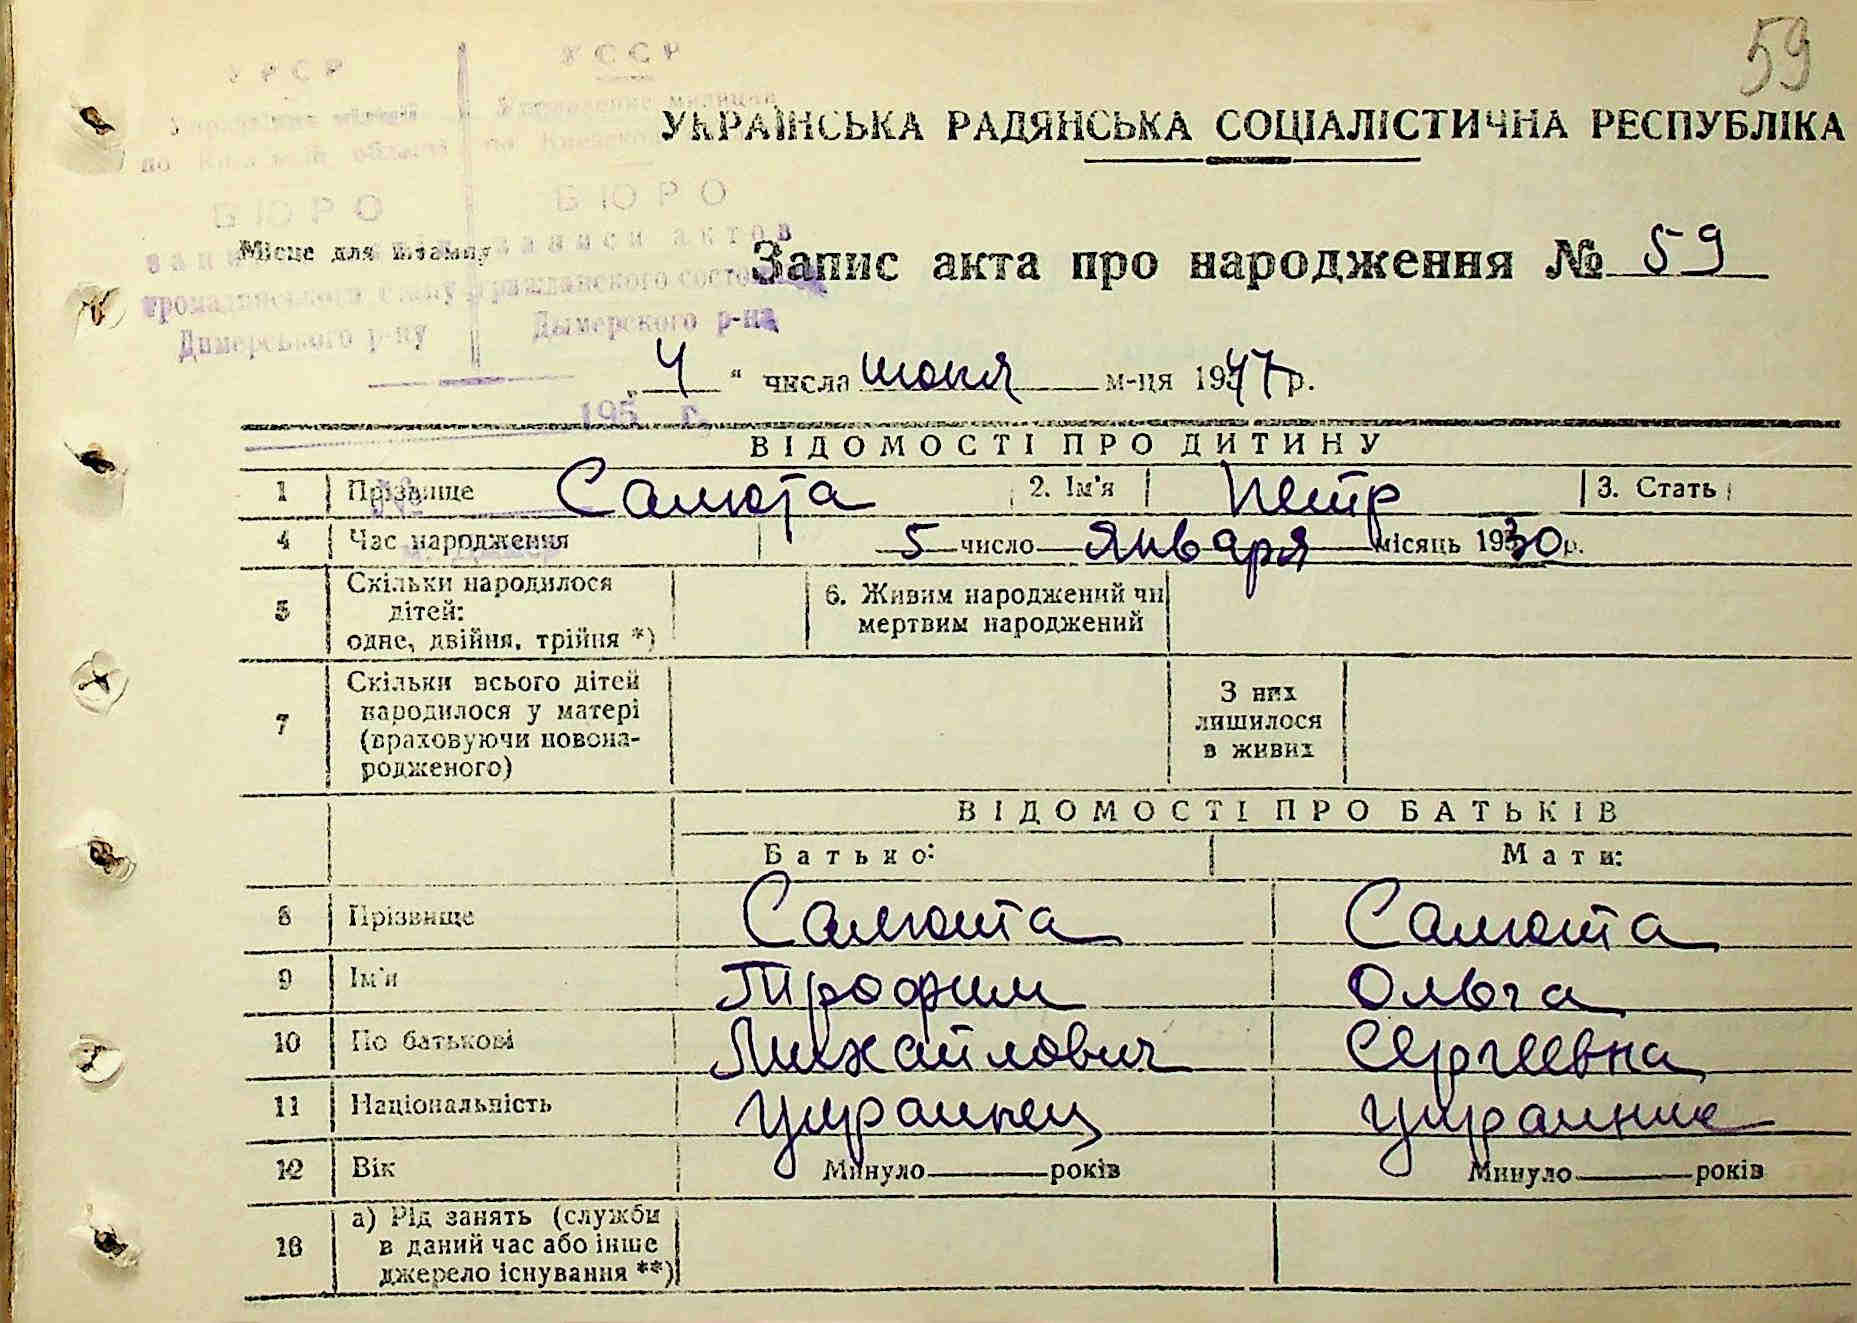 59
УРСР УССР
Управління міліції Управление милиции
по Київській області по Киевской
БЮРО БЮРО
записи актов
Місце для штампу
Запис акта про народження № 59
громадянського стану гражданского состояния
Димерського р-ну Дымерского р-на
УКРАЇНСЬКА РАДЯНСЬКА СОЦІАЛІСТИЧНА РЕСПУБЛІКА
„ 4 “ числа июня м-ця 1947 р.
195 г.
ВІДОМОСТІ ПРО ДИТИНУ
1 Прізвище Салюта 2. Ім'я Петр 3. Стать
4 Час народження 5 число января місяць 1930 р.
5 Скільки народилося
дітей:
одне, двійня, трійня *)
6. Живим народжений чи
мертвим народжений
7 Скільки всього дітей
народилося у матері
(враховуючи новона-
родженого)
З них
лишилося
в живих
ВІДОМОСТІ ПРО БАТЬКІВ
Батько: Мати:
8 Прізвище Салюта Салюта
9 Ім'я Трофим Ольга
10 По батькові Михайлович Сергеевна
11 Національність украинец украинка
12 Вік Минуло років Минуло років
13 а) Рід занять (служби
в даний час або інше
джерело існування **)